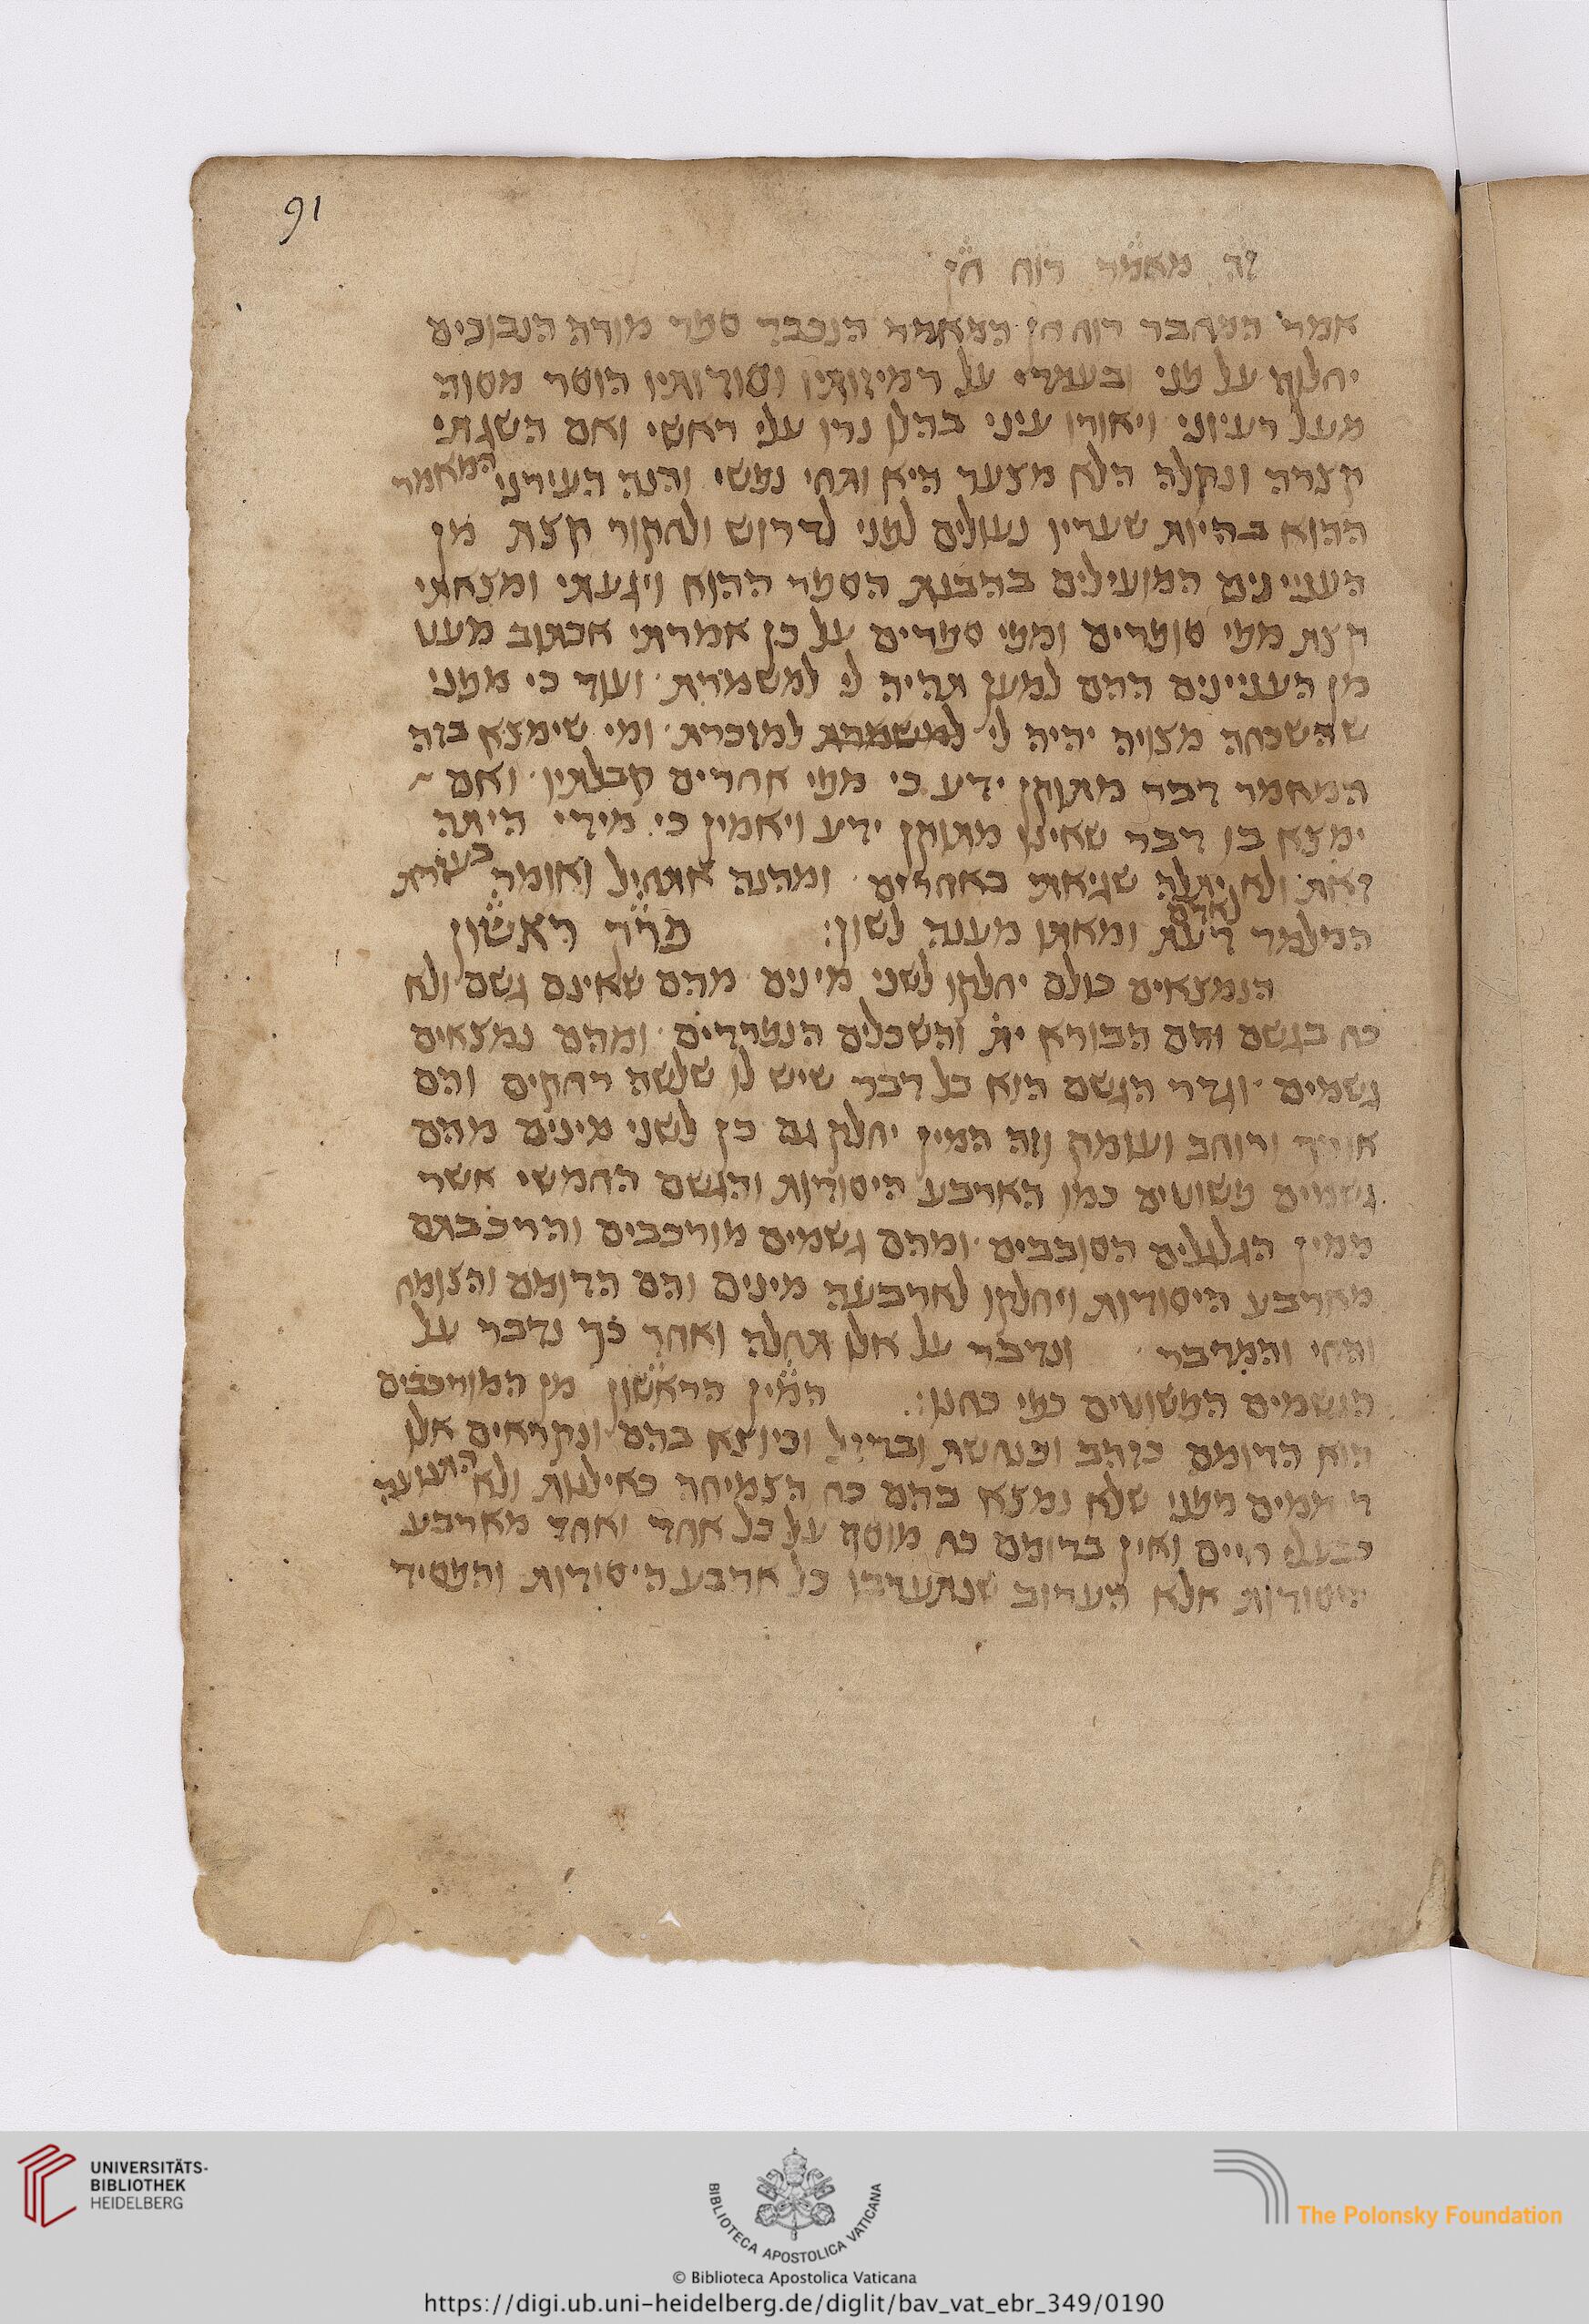 91
זה מאמר רוח חן
אמר המחבר רוח חן המאמר הנכבד ספר מורה הנבוכים
יחלוף על פני ובעמדי על רמיזותיו וסודותיו הוסר מסוה
מעל רעיוני ויאורו עיני בהלו נרו עלי ראשי ואם השגתי
קצרה ונקלה הלא מצער היא ותחי נפשי והנה העירני המאמר
ההוא בהיות שעריו נעולים לפני לדרוש ולחקור קצת מן
העניינים המועילים בהבנת הספר ההוא ויגעתי ומצאתי
קצת מפי סופרים ומפי ספרים על כן אמרתי אכתוב מעט
מן העניינים ההם למען תהיה לי למשמרת ועוד כי מפני
שהשכחה מצויה יהיה לי למשמרת למזכרת ומי שימצא בזה
המאמר דבר מתוקן ידע כי מפי אחרים קבלתיו ואם
ימצא בו דבר שאינו מתוקן ידע ויאמין כי מידי היתה
זאת ולא יתלה שגיאתי באחרים ומהנה אתחיל ואומר בעזרת
המלמד לאדם דעת ומאתו מענה לשון: פרק ראשון
הנמצאים כולם יחלקו לשני מינים מהם שאינם גשם ולא
כח בגשם והם הבורא ית והשכלים הנפרדים ומהם נמצאים
גשמים וגדר הגשם הוא כל דבר שיש לו שלשה רחקים והם
אורך ורוחב ועומק וזה המין יחלק גם כן לשני מינים מהם
גשמים פשוטים כמו הארבע היסודות והגשם החמשי אשר
ממין הגלגלים הסובבים ומהם גשמים מורכבים והרכבתם
מארבע היסודות ויחלקו לארבעה מינים והם הדומם והצומח
והחי והמדבר ונדבר על אלו תחלה ואחר כך נדבר על
הגשמים הפשוטים כפי כחנו: המין הראשון מן המורכבים
הוא הדומם כזהב וכנחשת ובדיל וכיוצא בהם ונקראים אלו
דוממים מפני שלא נמצא בהם כח הצמיחה כאילנות ולא התנועה
כבעלי חיים ואין בדומם כח מוסף על כל אחד ואחד מארבע
היסודות אלא הערוב שנתערבו כל ארבע היסודות והפסיד
UNIVERSITÄTS-
BIBLIOTHEK
HEIDELBERG
BIBLIOTECA APOSTOLICA VATICANA
The Polonsky Foundation
© Biblioteca Apostolica Vaticana
https://digi.ub.uni-heidelberg.de/diglit/bav_vat_ebr_349/0190